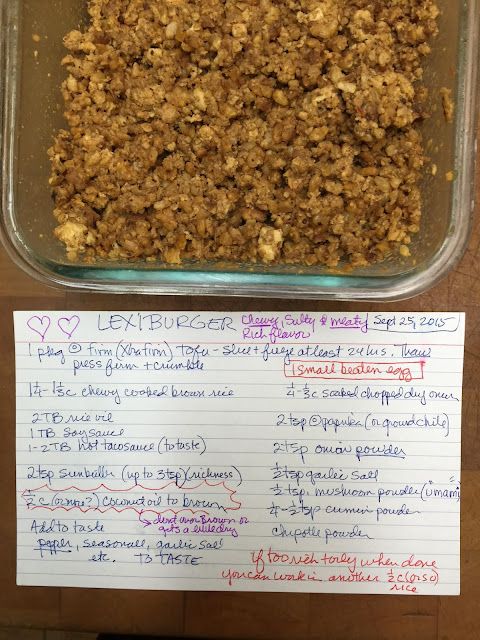 LEXIBURGER chewy, salty & meaty Sept 25, 2015
Rich flavor
1 pkg firm (Xtra firm) Tofu - slice + freeze at least 24 hrs. Thaw
press firm + crumble
1 small beaten egg
1/4 - 1/3 c chewy cooked brown rice
1/4 - 1/3 c soaked chopped dry onion
2 TB rice vin
2 tsp paprika (or ground chile)
1 TB Soy Sauce
1-2 TB hot taco sauce (to taste)
2 tsp onion powder
2 tsp Sunbutter (up to 3 tsp) (richness)
1/2 tsp garlic salt
1/2 tsp. mushroom powder ("umami")
1/2 c (or more?) Coconut oil to brown
1/4 - 1/2 tsp cumin powder
→ dont over brown or
gets a little dry
Add to taste
chipotle powder
pepper, seasonall, garlic salt
etc. To TASTE
If too rich + oily when done
you can work in another 1/2 c (or so)
rice